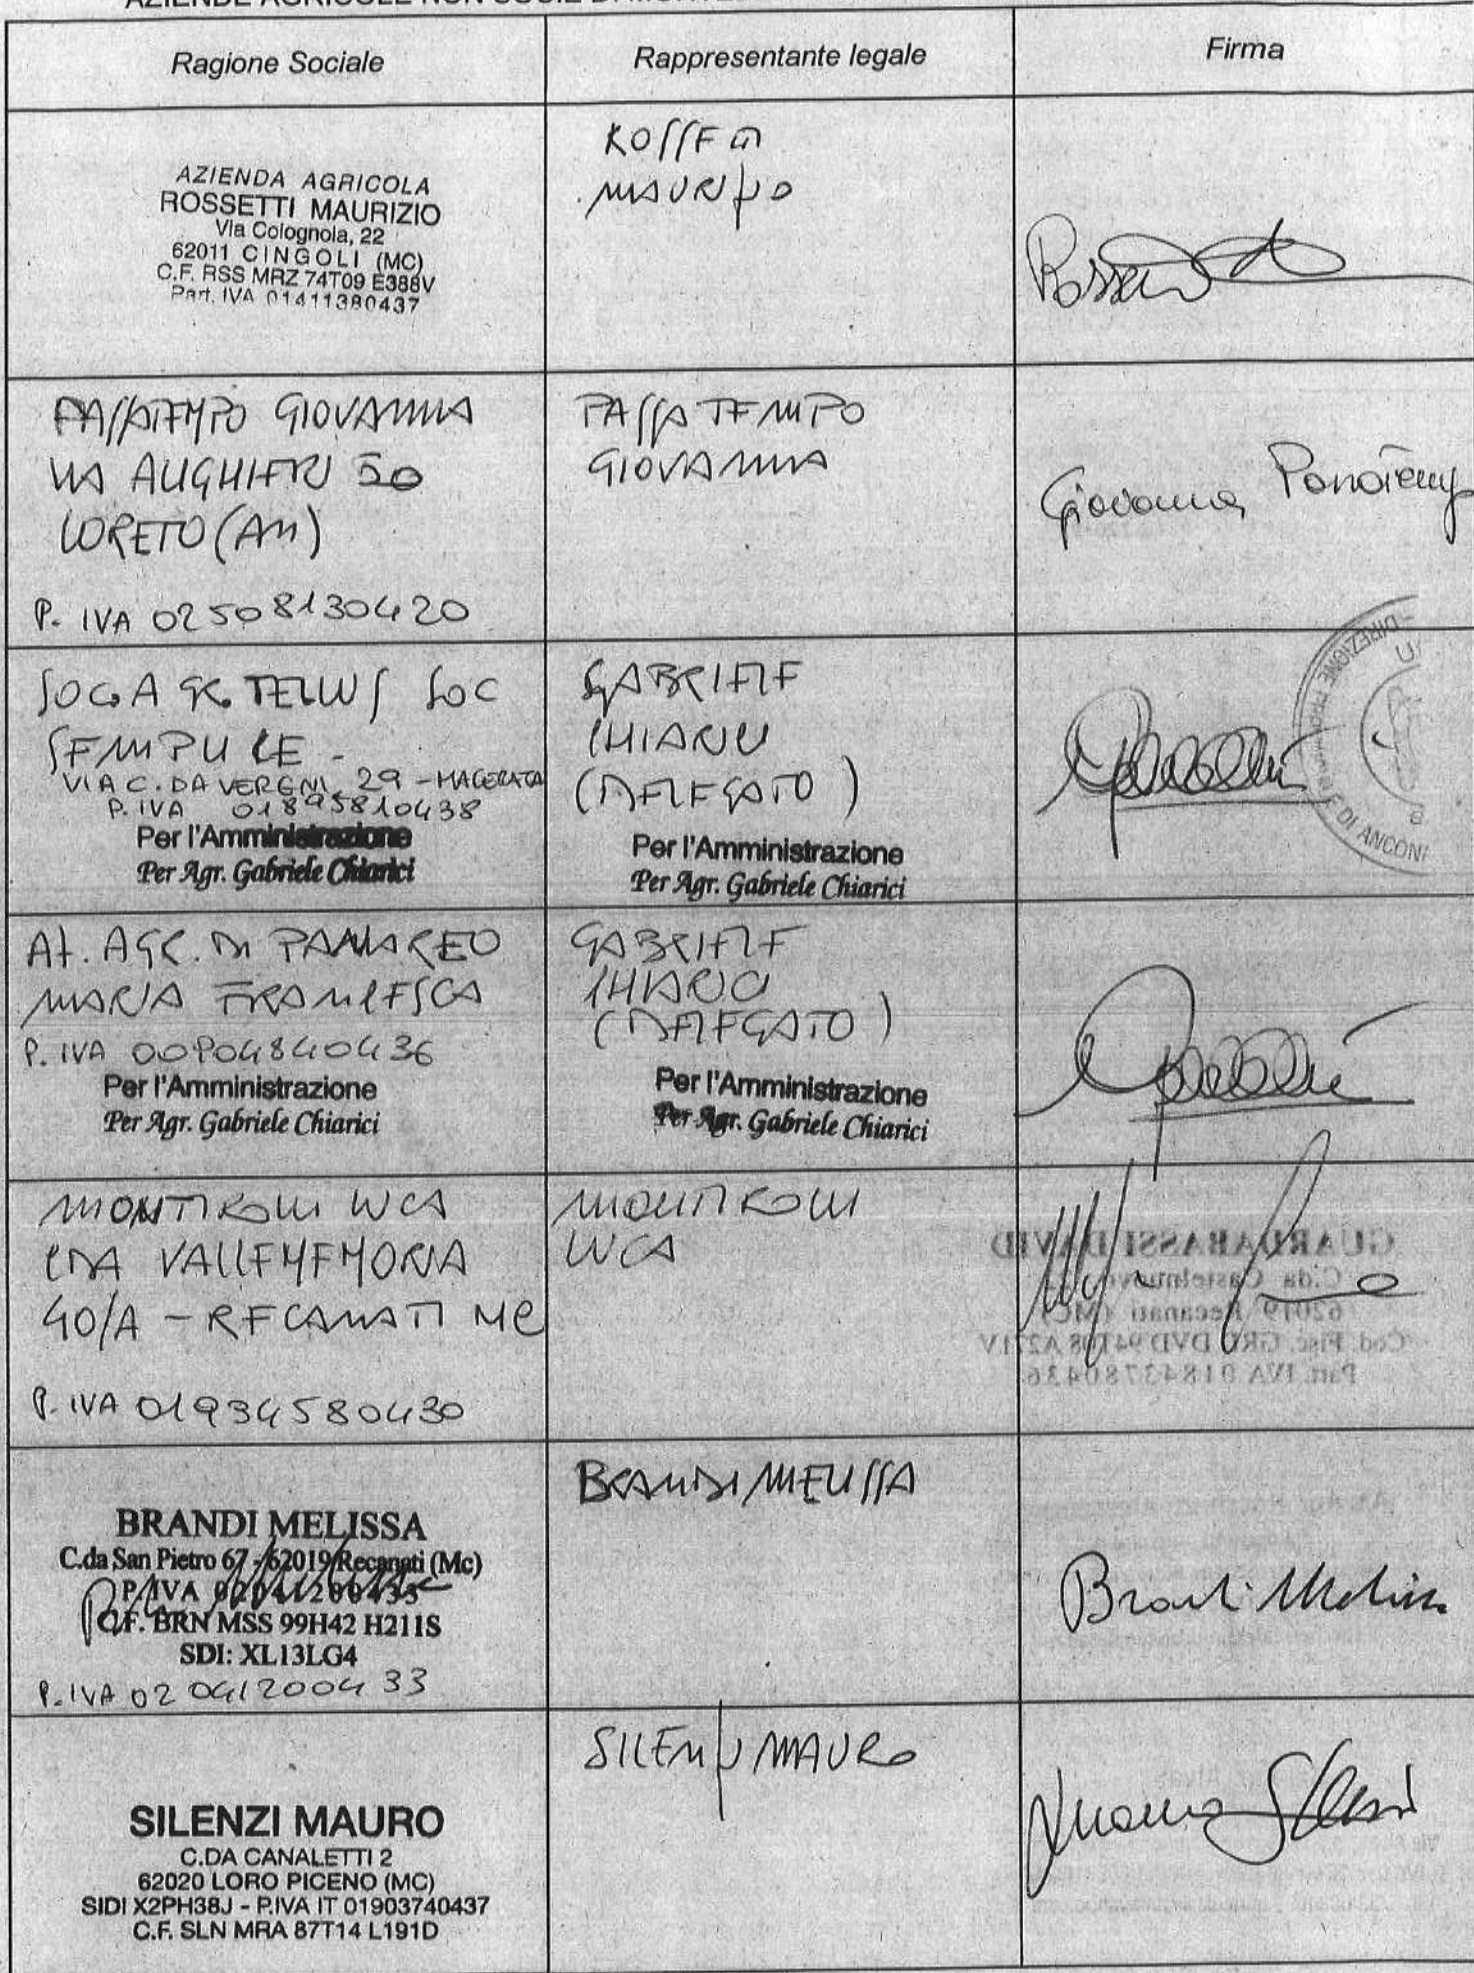 Ragione Sociale
Rappresentante legale
Firma
AZIENDA AGRICOLA
ROSSETTI MAURIZIO
Via Colognola, 22
62011 CINGOLI (MC)
C.F. RSS MRZ 74T09 E388V
Part. IVA 01411380437
ROSSETTI
MAURIZIO
PASSATEMPO GIOVANNA
VIA ALIGHIERI 50
LORETO (AN)
P. IVA 02508130420
PASSATEMPO
GIOVANNA
Giovanna
SOC. AGR. TELLUS SOC
SEMPLICE -
VIA C.DA VERGINI, 29 - MACERATA
P. IVA 01895810438
Per l'Amministrazione
Per Agr. Gabriele Chiarici
GABRIELE
CHIARICI
(DELEGATO)
Per l'Amministrazione
Per Agr. Gabriele Chiarici
DIREZIONE
DI ANCONA
AZ. AGR. DI PANAREO
MARIA FRANCESCA
P. IVA 00904840436
Per l'Amministrazione
Per Agr. Gabriele Chiarici
GABRIELE
CHIARICI
(DELEGATO)
Per l'Amministrazione
Per Agr. Gabriele Chiarici
MONTIRONI LUCA
C.DA VALLEMEMORIA
40/A - RECANATI MC
P. IVA 01934580430
MONTIRONI
LUCA
GUARDABASSI DAVID
C.da Castelnuovo
62019 Recanati (MC)
Cod. Fisc. GRD DVD 94T08 A271V
Part. IVA 01843780436
BRANDI MELISSA
C.da San Pietro 67 - 62019 Recanati (Mc)
P. IVA 02041200433
C.F. BRN MSS 99H42 H211S
SDI: XL13LG4
P. IVA 02041200433
BRANDI MELISSA
Brandi Melissa
SILENZI MAURO
C.DA CANALETTI 2
62020 LORO PICENO (MC)
SIDI X2PH38J - P.IVA IT 01903740437
C.F. SLN MRA 87T14 L191D
SILENZI MAURO
Mauro Silenzi